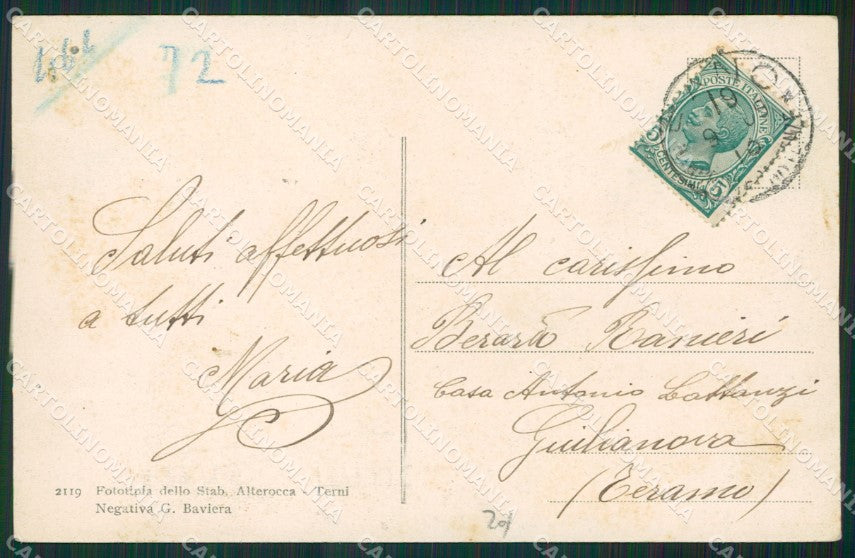 72
Saluti affettuosi
a tutti
Maria
2119 Fototipia dello Stab. Alterocca - Terni
Negativa G. Baviera
POSTE ITALIANE
CENTESIMI 5
Al carissimo
Ranieri
Casa Antonio Cattanzi
Giulianova
(Teramo)
CARTOLINOMANIA